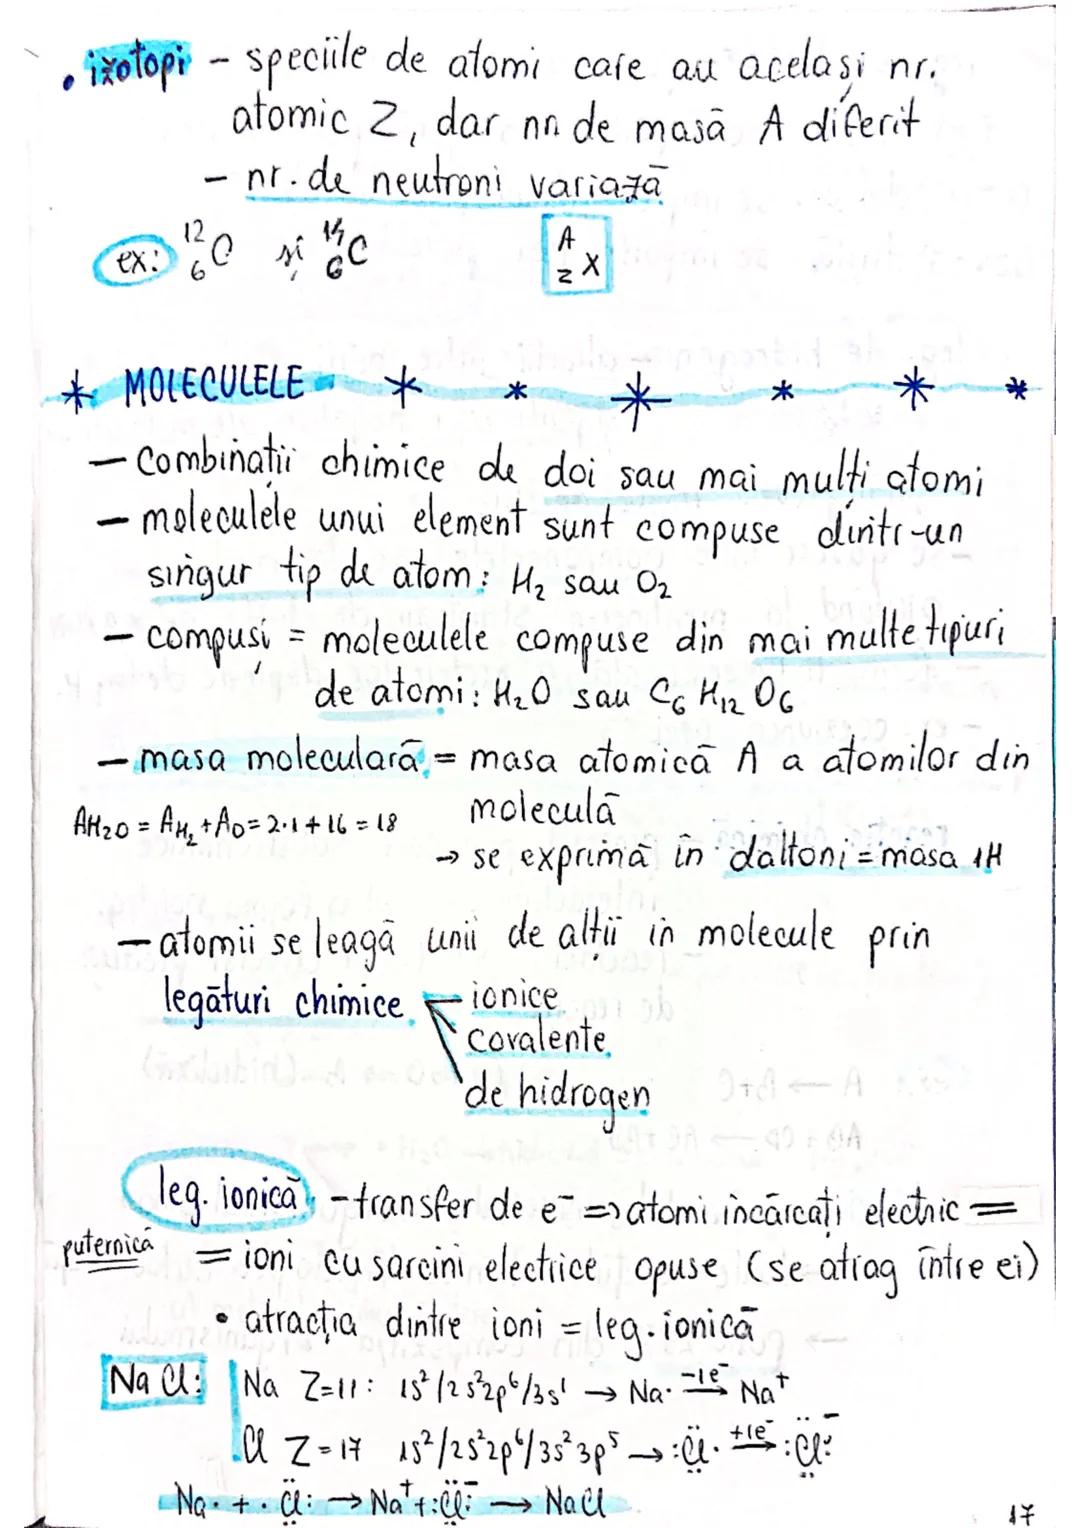 • izotopi - speciile de atomi care au același nr.
atomic Z, dar nr. de masă A diferit
- nr. de neutroni variază
ex: ¹²₆C și ¹⁴₆C
A
Z X
* MOLECULELE * * * * * *
- combinații chimice de doi sau mai mulți atomi
- moleculele unui element sunt compuse dintr-un
singur tip de atom: H₂ sau O₂
- compuși = moleculele compuse din mai multe tipuri
de atomi: H₂O sau C₆H₁₂O₆
- masa moleculară = masa atomică A a atomilor din
moleculă
AH₂O = AH₂ + AO = 2·1 + 16 = 18
→ se exprimă în daltoni = masa 1H
- atomii se leagă unii de alții în molecule prin
legături chimice
ionice
covalente
de hidrogen
leg. ionică - transfer de e⁻ => atomi încărcați electric =
puternică
= ioni cu sarcini electrice opuse (se atrag între ei)
• atracția dintre ioni = leg. ionică
NaCl: Na Z=11: 1s²/2s²2p⁶/3s¹ → Na· -1e⁻→ Na⁺
Cl Z=17 1s²/2s²2p⁶/3s²3p⁵ → :C̈l· +1e⁻→ :C̈l:⁻
Na· + ·C̈l: → Na⁺ + :C̈l:⁻ → NaCl
17